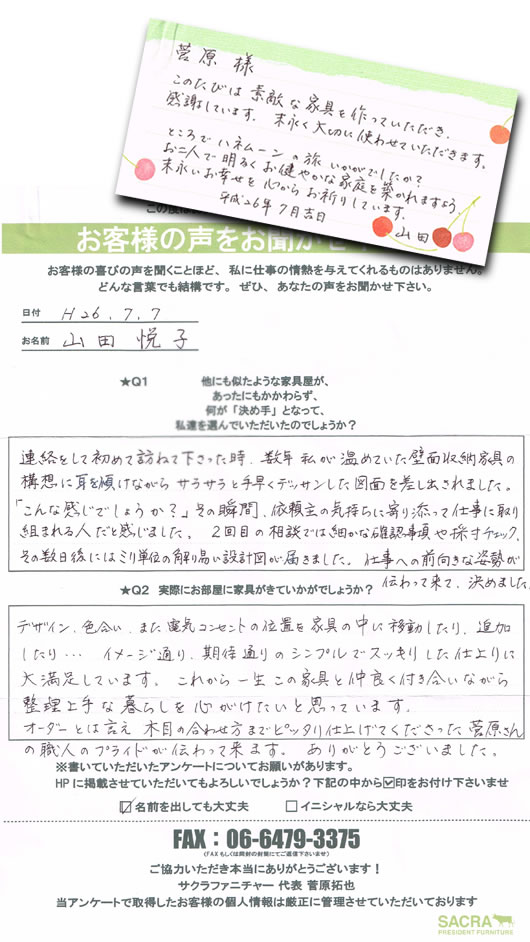 菅原様
このたびは素敵な家具を作っていただき、
感謝しています。末永く大切に使わせていただきます。
ところでハネムーンの旅いかがでしたか？
お二人で明るくお健やかな家庭を築かれますよう、
末永いお幸せを心からお祈りしています。
平成26年7月吉日
山田
お客様の声をお聞かせ
お客様の喜びの声を聞くことほど、私に仕事の情熱を与えてくれるものはありません。
どんな言葉でも結構です。ぜひ、あなたの声をお聞かせ下さい。
日付 H26.7.7
お名前 山田 悦子
★Q1 他にも似たような家具屋が、
あったにもかかわらず、
何が「決め手」となって、
私達を選んでいただいたのでしょうか？
連絡をして初めて訪ねて下さった時、数年私が温めていた壁面収納家具の
構想に耳を傾けながらサラサラと手早くデッサンした図面を差し出されました。
「こんな感じでしょうか？」その瞬間、依頼主の気持ちに寄り添って仕事に取り
組まれる人だと感じました。2回目の相談では細かな確認事項や採寸チェック、
その数日後にはミリ単位の解り易い設計図が届きました。仕事への前向きな姿勢が
伝わって来て、決めました。
★Q2 実際にお部屋に家具がきていかがでしょうか？
デザイン、色合い、また電気コンセントの位置を家具の中に移動したり、追加
したり… イメージ通り、期待通りのシンプルでスッキリした仕上りに
大満足しています。これから一生この家具と仲良く付き合いながら
整理上手な暮らしを心がけたいと思っています。
オーダーとは言え木目の合わせ方までピッタリ仕上げてくださった菅原さん
の職人のプライドが伝わって来ます。ありがとうございました。
※書いていただいたアンケートについてお願いがあります。
HPに掲載させていただいてもよろしいでしょうか？下記の中から☑印をお付け下さいませ
☑名前を出しても大丈夫 □イニシャルなら大丈夫
FAX：06-6479-3375
(FAXもしくは同封の封筒にてご返信下さいませ)
ご協力いただき本当にありがとうございます！
サクラファニチャー 代表 菅原拓也
当アンケートで取得したお客様の個人情報は厳正に管理させていただいております
SACRA
PRESIDENT FURNITURE